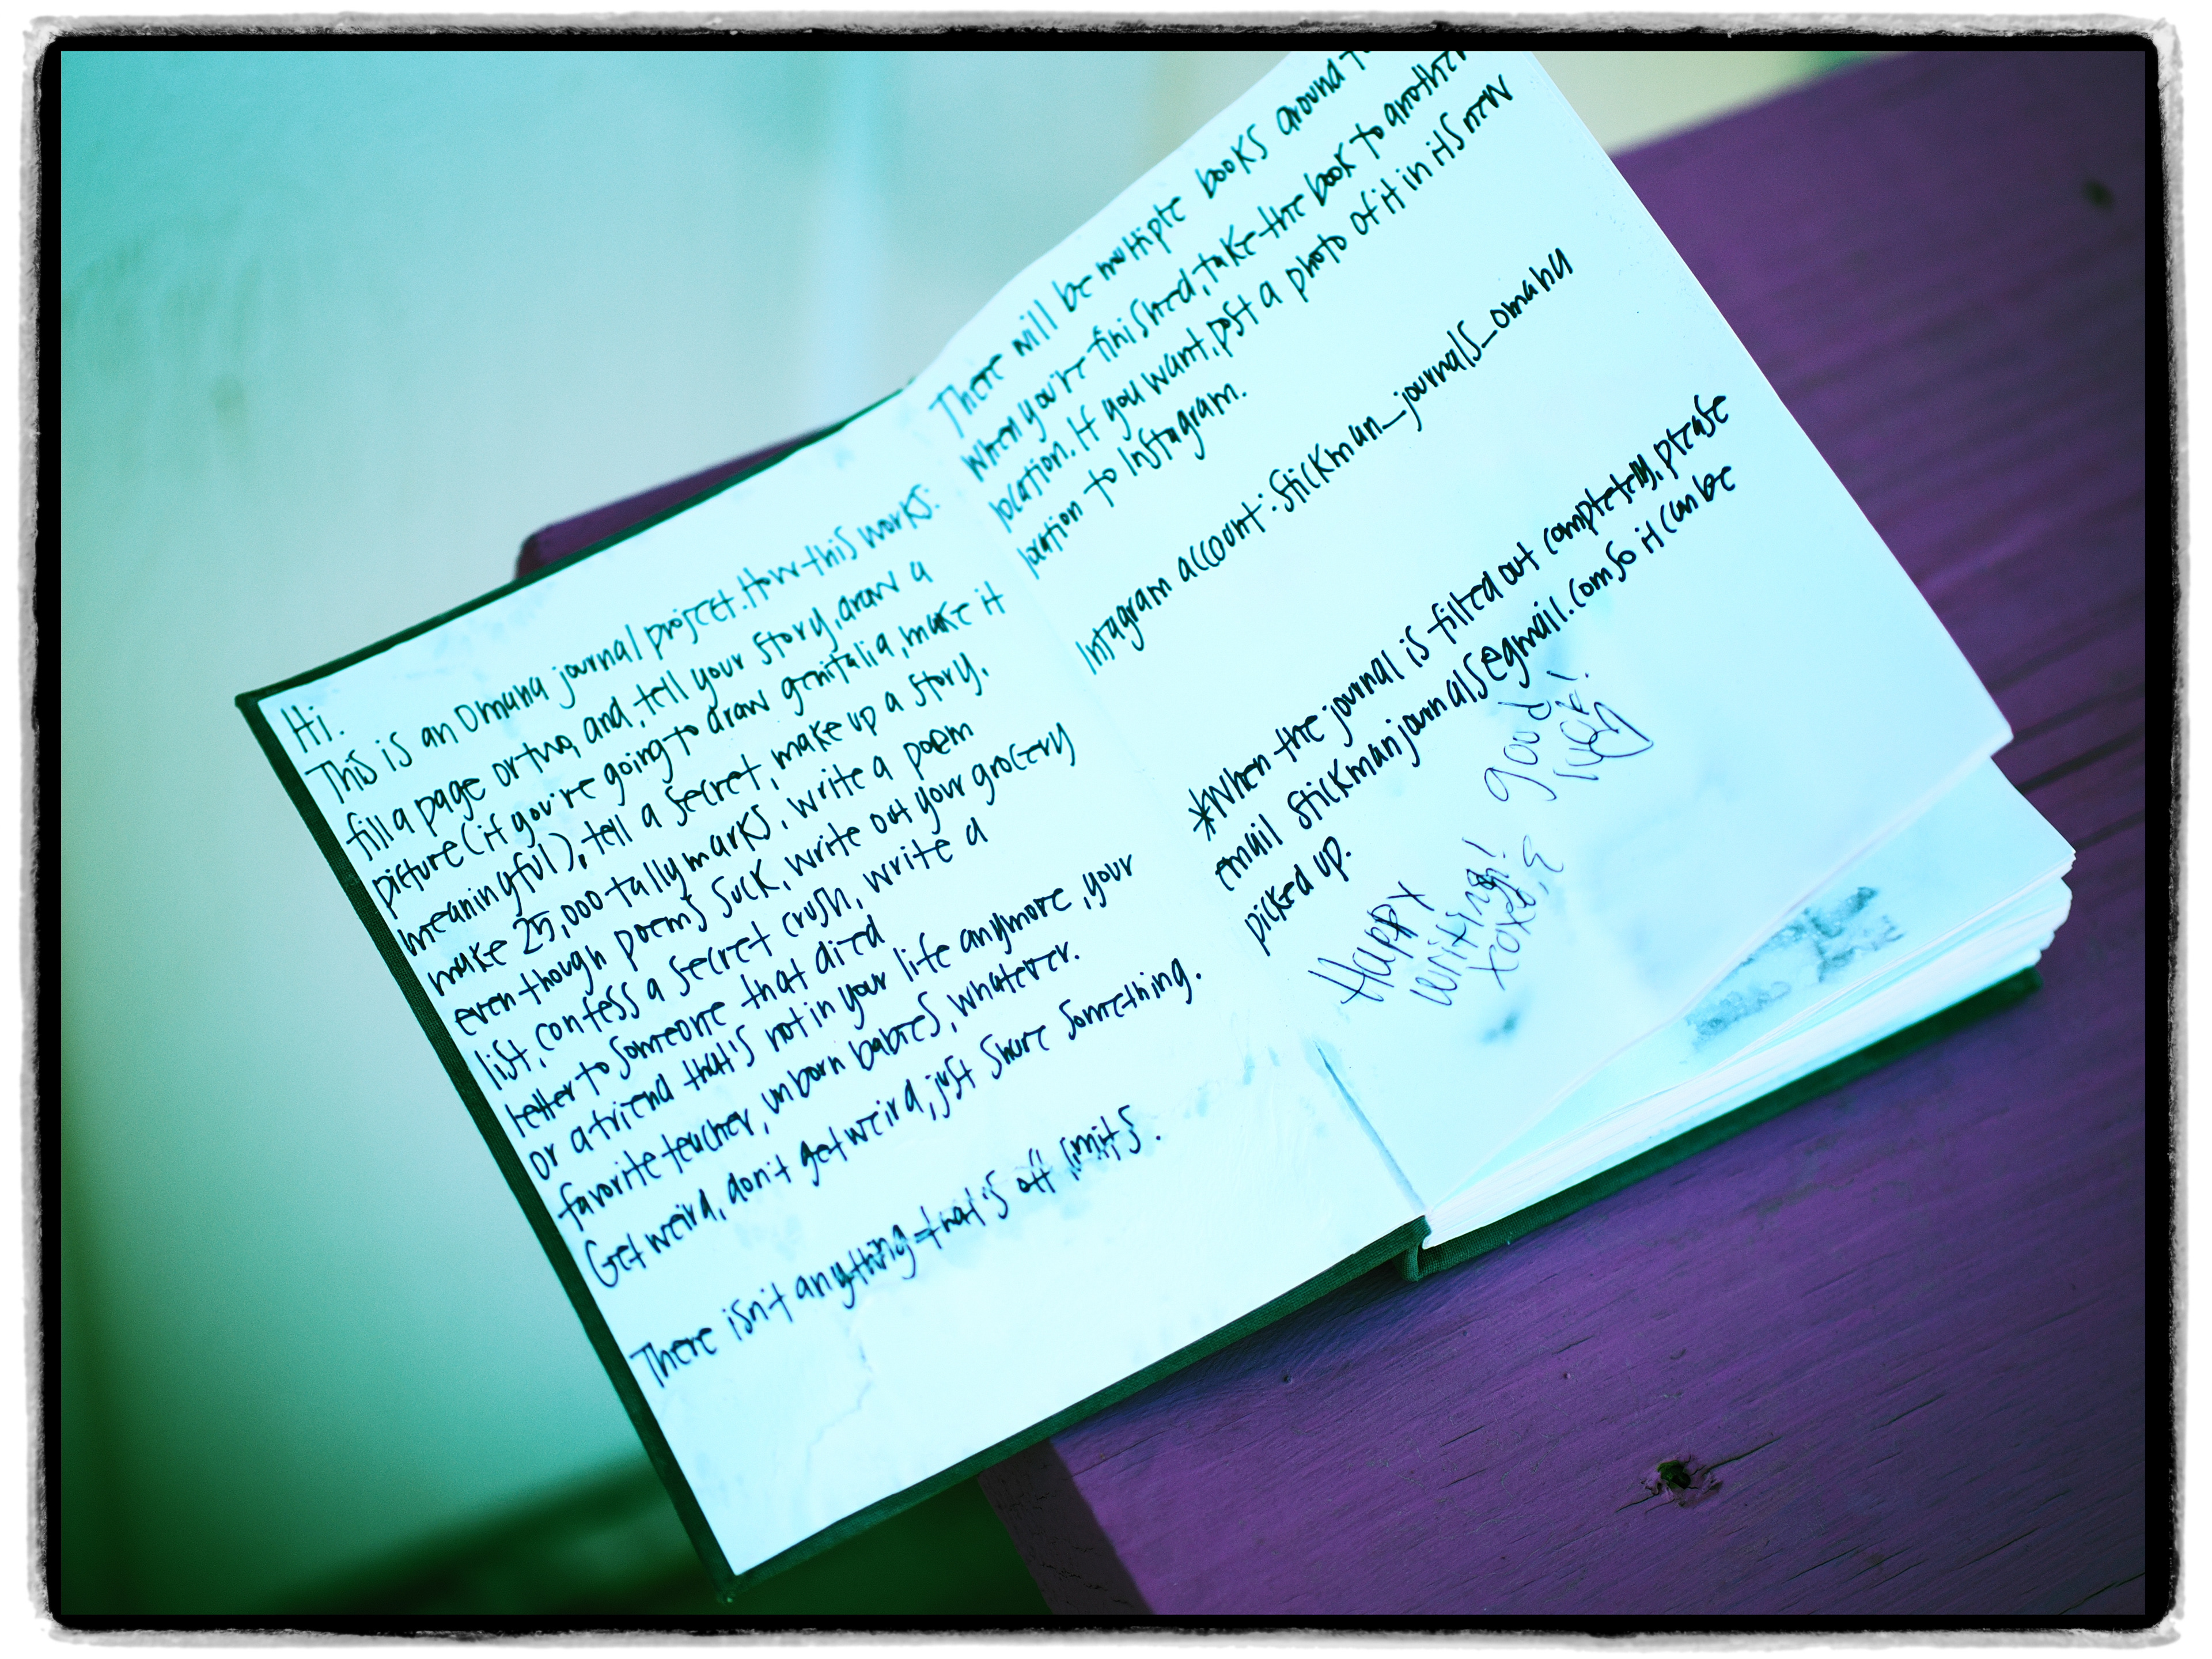 Hi.
This is an Omaha journal project. How this works:
fill a page or two, and, tell your story, draw a
picture (if you're going to draw genitalia, make it
meaningful), tell a secret, make up a story,
make 25,000 tally marks, write a poem
even though poems suck, write out your grocery
list, confess a secret crush, write a
letter to someone that died
or a friend that's not in your life anymore, your
favorite teacher, unborn babies, whatever.
Get weird, don't get weird, just share something.
There isn't anything that's off limits.
There will be multiple books around
When you're finished, take the book to another
location. If you want, post a photo of it in its new
location to Instagram.
Intagram account: stickman_journals_omaha
*When the journal is filled out completely, please
email stickmanjournals@gmail.com so it can be
picked up.
Happy
writing!
xoxo, E
good